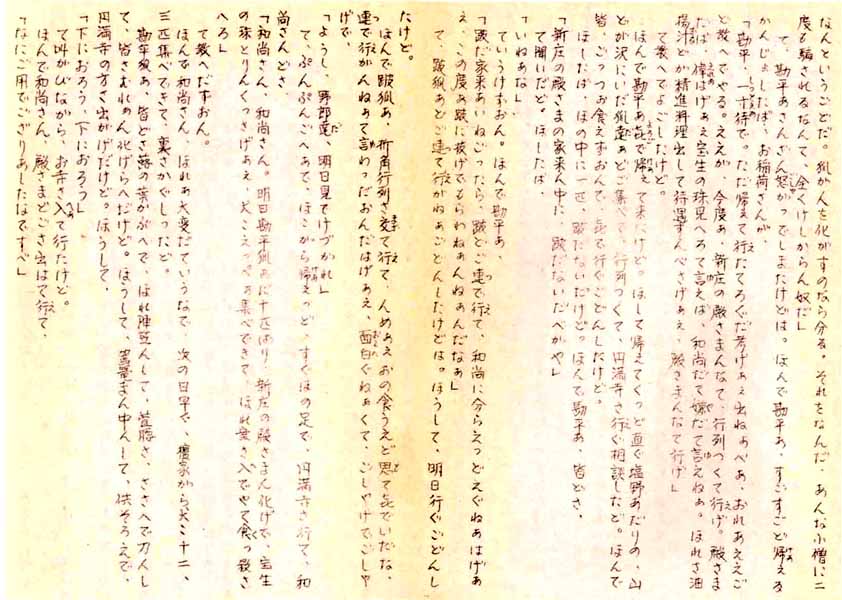 なんというごどだ。狐が人を化がすのなら分る。それをなんだ、あんな小僧に二
度も騙されるなんて、全くけしからん奴だ」
て、勘平あさんざん怒がってしまたけどは。ほんで勘平あ、すごすごど帰える
かんじょしたば、お稲荷さんが、
「勘平、一寸待で。ただ帰えて行たてろくだ考げぁぇ出ねぁべぁ、おれあええご
ど教へでやる。ええが、今度あ、新庄の殿さまんなて、行列つくて行げ。殿さま
だば、偉はげぁぇ宝生の珠見へろて言えば、和尚だて嫌だて言えねぁ。ほれさ油
揚汁とか精進料理出して待遇すんべさげぁぇ、殿さまんなて行げ」
て教へてよごしたけど。
ほんで勘平あ㐂で帰えて来たけど。ほして帰えてくっど直ぐ塩野あだりの、山
どが沢にいだ狐達あどご集べで、行列つくて、円満寺さ行ぐ相談したど。ほんで
皆、ごっつぉ食えすおんて、㐂で行ぐごどんしたけど。
ほしたば、ほの中に一匹、跛だないだけど。ほんで勘平あ、皆どさ、
「新庄の殿さまの家来ん中に、跛だないだべがや」
て聞いだど。ほしたば、
「いねぁな」
ていうけすおん。ほんで勘平あ、
「跛だ家来あいねごったら、跛どご連で行えて、和尚に分らえっどえぐねぁはげぁ
え、この度あ跛だ抜げでもらわねぁんねぁんだなぁ」
て、跛狐あどご連て行えがねぁごどんしたけどは。ほうして、明日行ぐごどんし
たけど。
ほんで跛狐あ、折角行列さ交て行えて、んめぁえおの食うえど思て㐂でいだな、
連で行えがんねぁて言わっだおんだはげぁぇ、面白ぐねぁくて、ごしゃげでごしゃ
げで、
「ようし、野郎達、明日見てけづかれ」
て、ぷんぷんごへぁで、ほこから帰えっど、すぐほの足で、円満寺さ行て、和
尚さんどさ、
「和尚さん、和尚さん。明日勘平狐あだ十匹ばり、新庄の殿さまん化げで、宝生
の珠とりんくっさげぁぇ、犬こえっぺぁ集べできて、ほれ無さ入でやて食っ殺さ
へろ」
て教へだすおん。
ほんで和尚さん、ほれぁ大変だていうなで、次の日早ぐ、檀家がら犬こ十二、
三匹集べできて、裏さかぐしったど。
勘平狐あ、皆どさ蕗の葉かぶへで、ほれ陣笠んして、萱勝さ、ささへで刀んし
て、皆さむれぁん化げらへだけど。ほうして、葦簾まん中んして、供そろえで、
円満寺の方さ出がげだけど。ほうして、
「下におろう、下におろう」
て叫がびながら、お寺さ入て行たけど。
ほんで和尚さん、殿さまどごさ出はて行えて、
「なにご用でござりあしたなですべ」